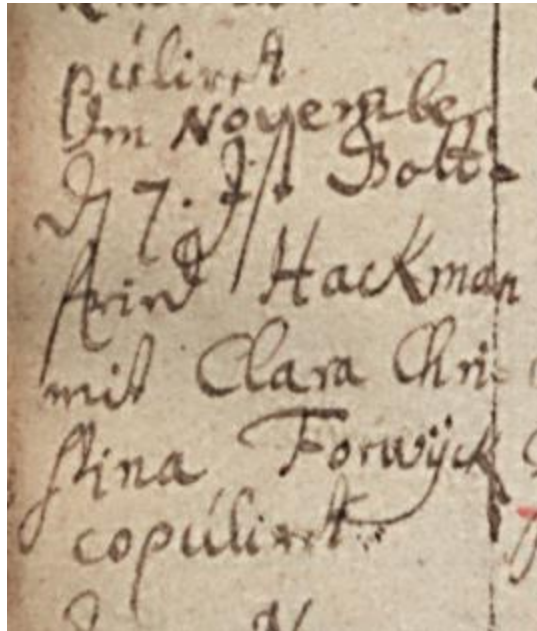 púliret
Im November
d 7. Ist Bolt-
hrind Hackman
mit Clara Chri-
stina Forwijck
copúliret.